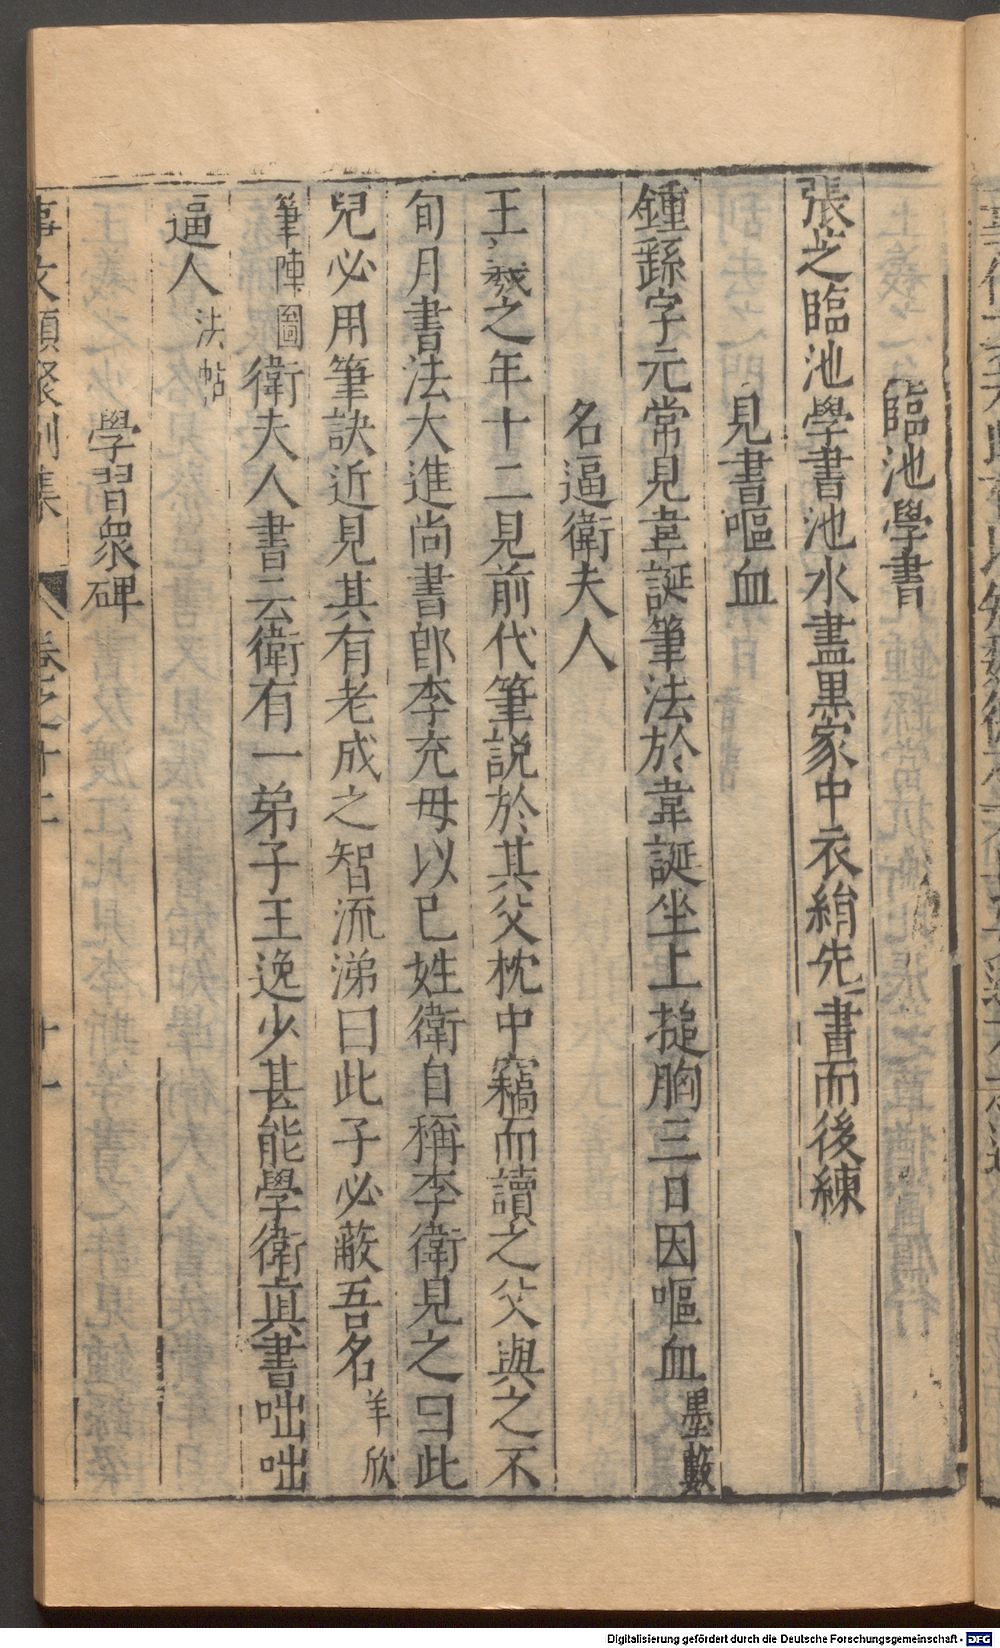 臨池學書
張芝臨池學書池水盡黒家中衣絹先書而後練
見書嘔血
鍾繇字元常見韋誕筆法於韋誕坐上搥胸三日因嘔血墨藪
名逼衛夫人
王羲之年十二見前代筆說於其父枕中竊而讀之父與之不
旬月書法大進尚書郎李充母以已姓衛自稱李衛見之曰此
兒必用筆訣近見其有老成之智流涕曰此子必蔽吾名羊欣
筆陣圖衛夫人書云衛有一弟子王逸少甚能學衛眞書咄咄
逼人法帖
學習衆碑
事文類聚別集
卷之十二
十一
Digitalisierung gefördert durch die Deutsche Forschungsgemeinschaft - DFG